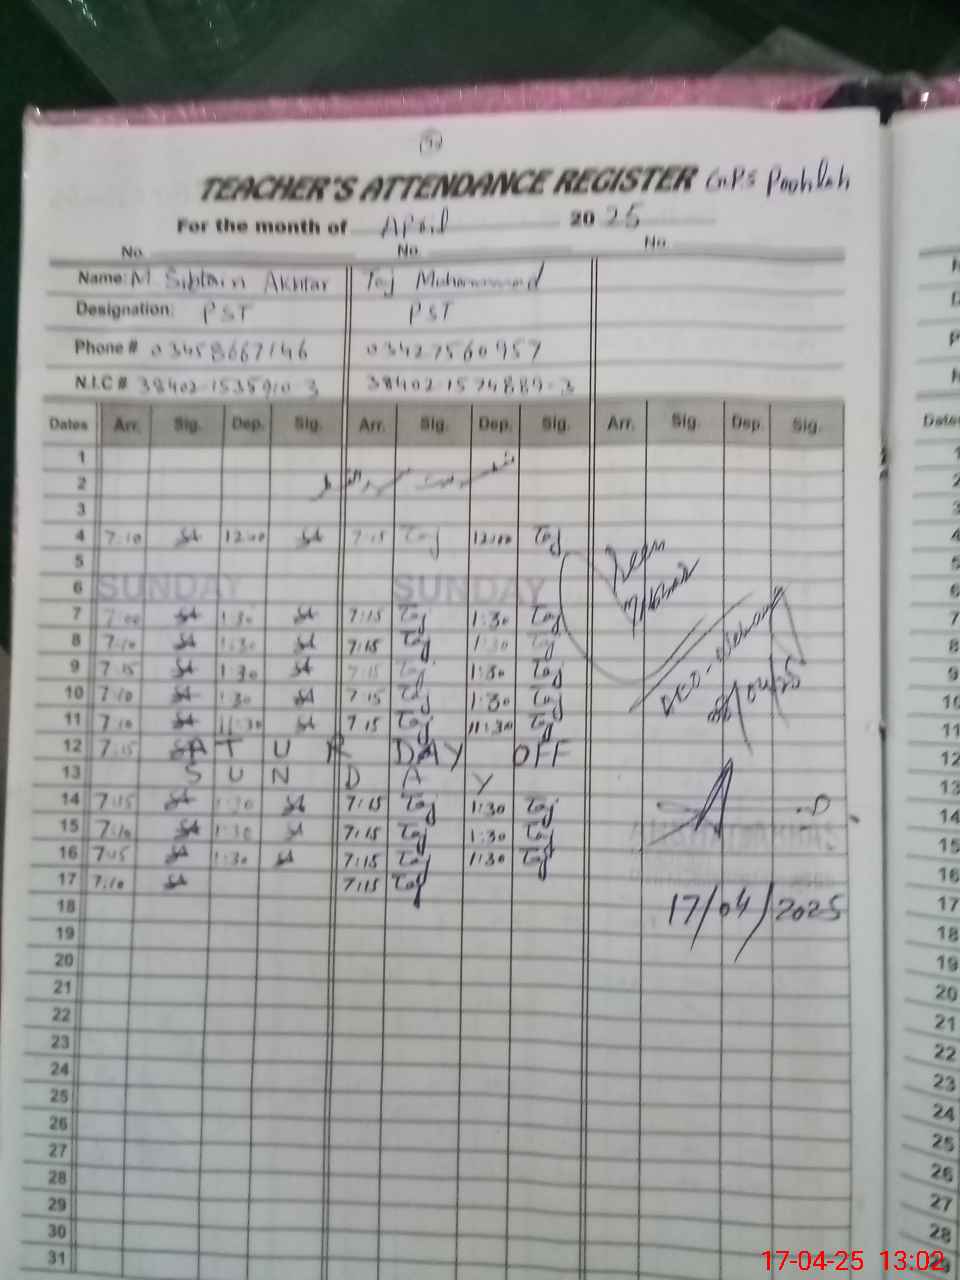 TEACHER'S ATTENDANCE REGISTER G.P.S
For the month of April 2025
No. No. No.
Name: M Sibtain Akhtar Taj Muhammad
Designation: PST PST
Phone # 03458667146 03427560957
N.I.C # 38402-1535910-3 38402-1574889-3
Dates Arr. Sig. Dep. Sig. Arr. Sig. Dep. Sig. Arr. Sig. Dep. Sig.
1
2
3
4 7:10 SA 12:00 SA 7:15 Taj 12:00 Taj
5
6 SUNDAY SUNDAY
7 7:00 SA 1:30 SA 7:15 Taj 1:30 Taj
8 7:10 SA 1:30 SA 7:15 Taj 1:30 Taj
9 7:15 SA 1:30 SA 7:15 Taj 1:30 Taj
10 7:10 SA 1:30 SA 7:15 Taj 1:30 Taj
11 7:10 SA 11:30 SA 7:15 Taj 11:30 Taj
12 7:15 SATURDAY OFF
13 SUNDAY
14 7:15 SA 1:30 SA 7:15 Taj 1:30 Taj
15 7:10 SA 1:30 SA 7:15 Taj 1:30 Taj
16 7:15 SA 1:30 SA 7:15 Taj 1:30 Taj
17 7:10 SA 7:15 Taj
Seen
17/04/2025
18
19
20
21
22
23
24
25
26
27
28
29
30
31
17-04-25 13:02